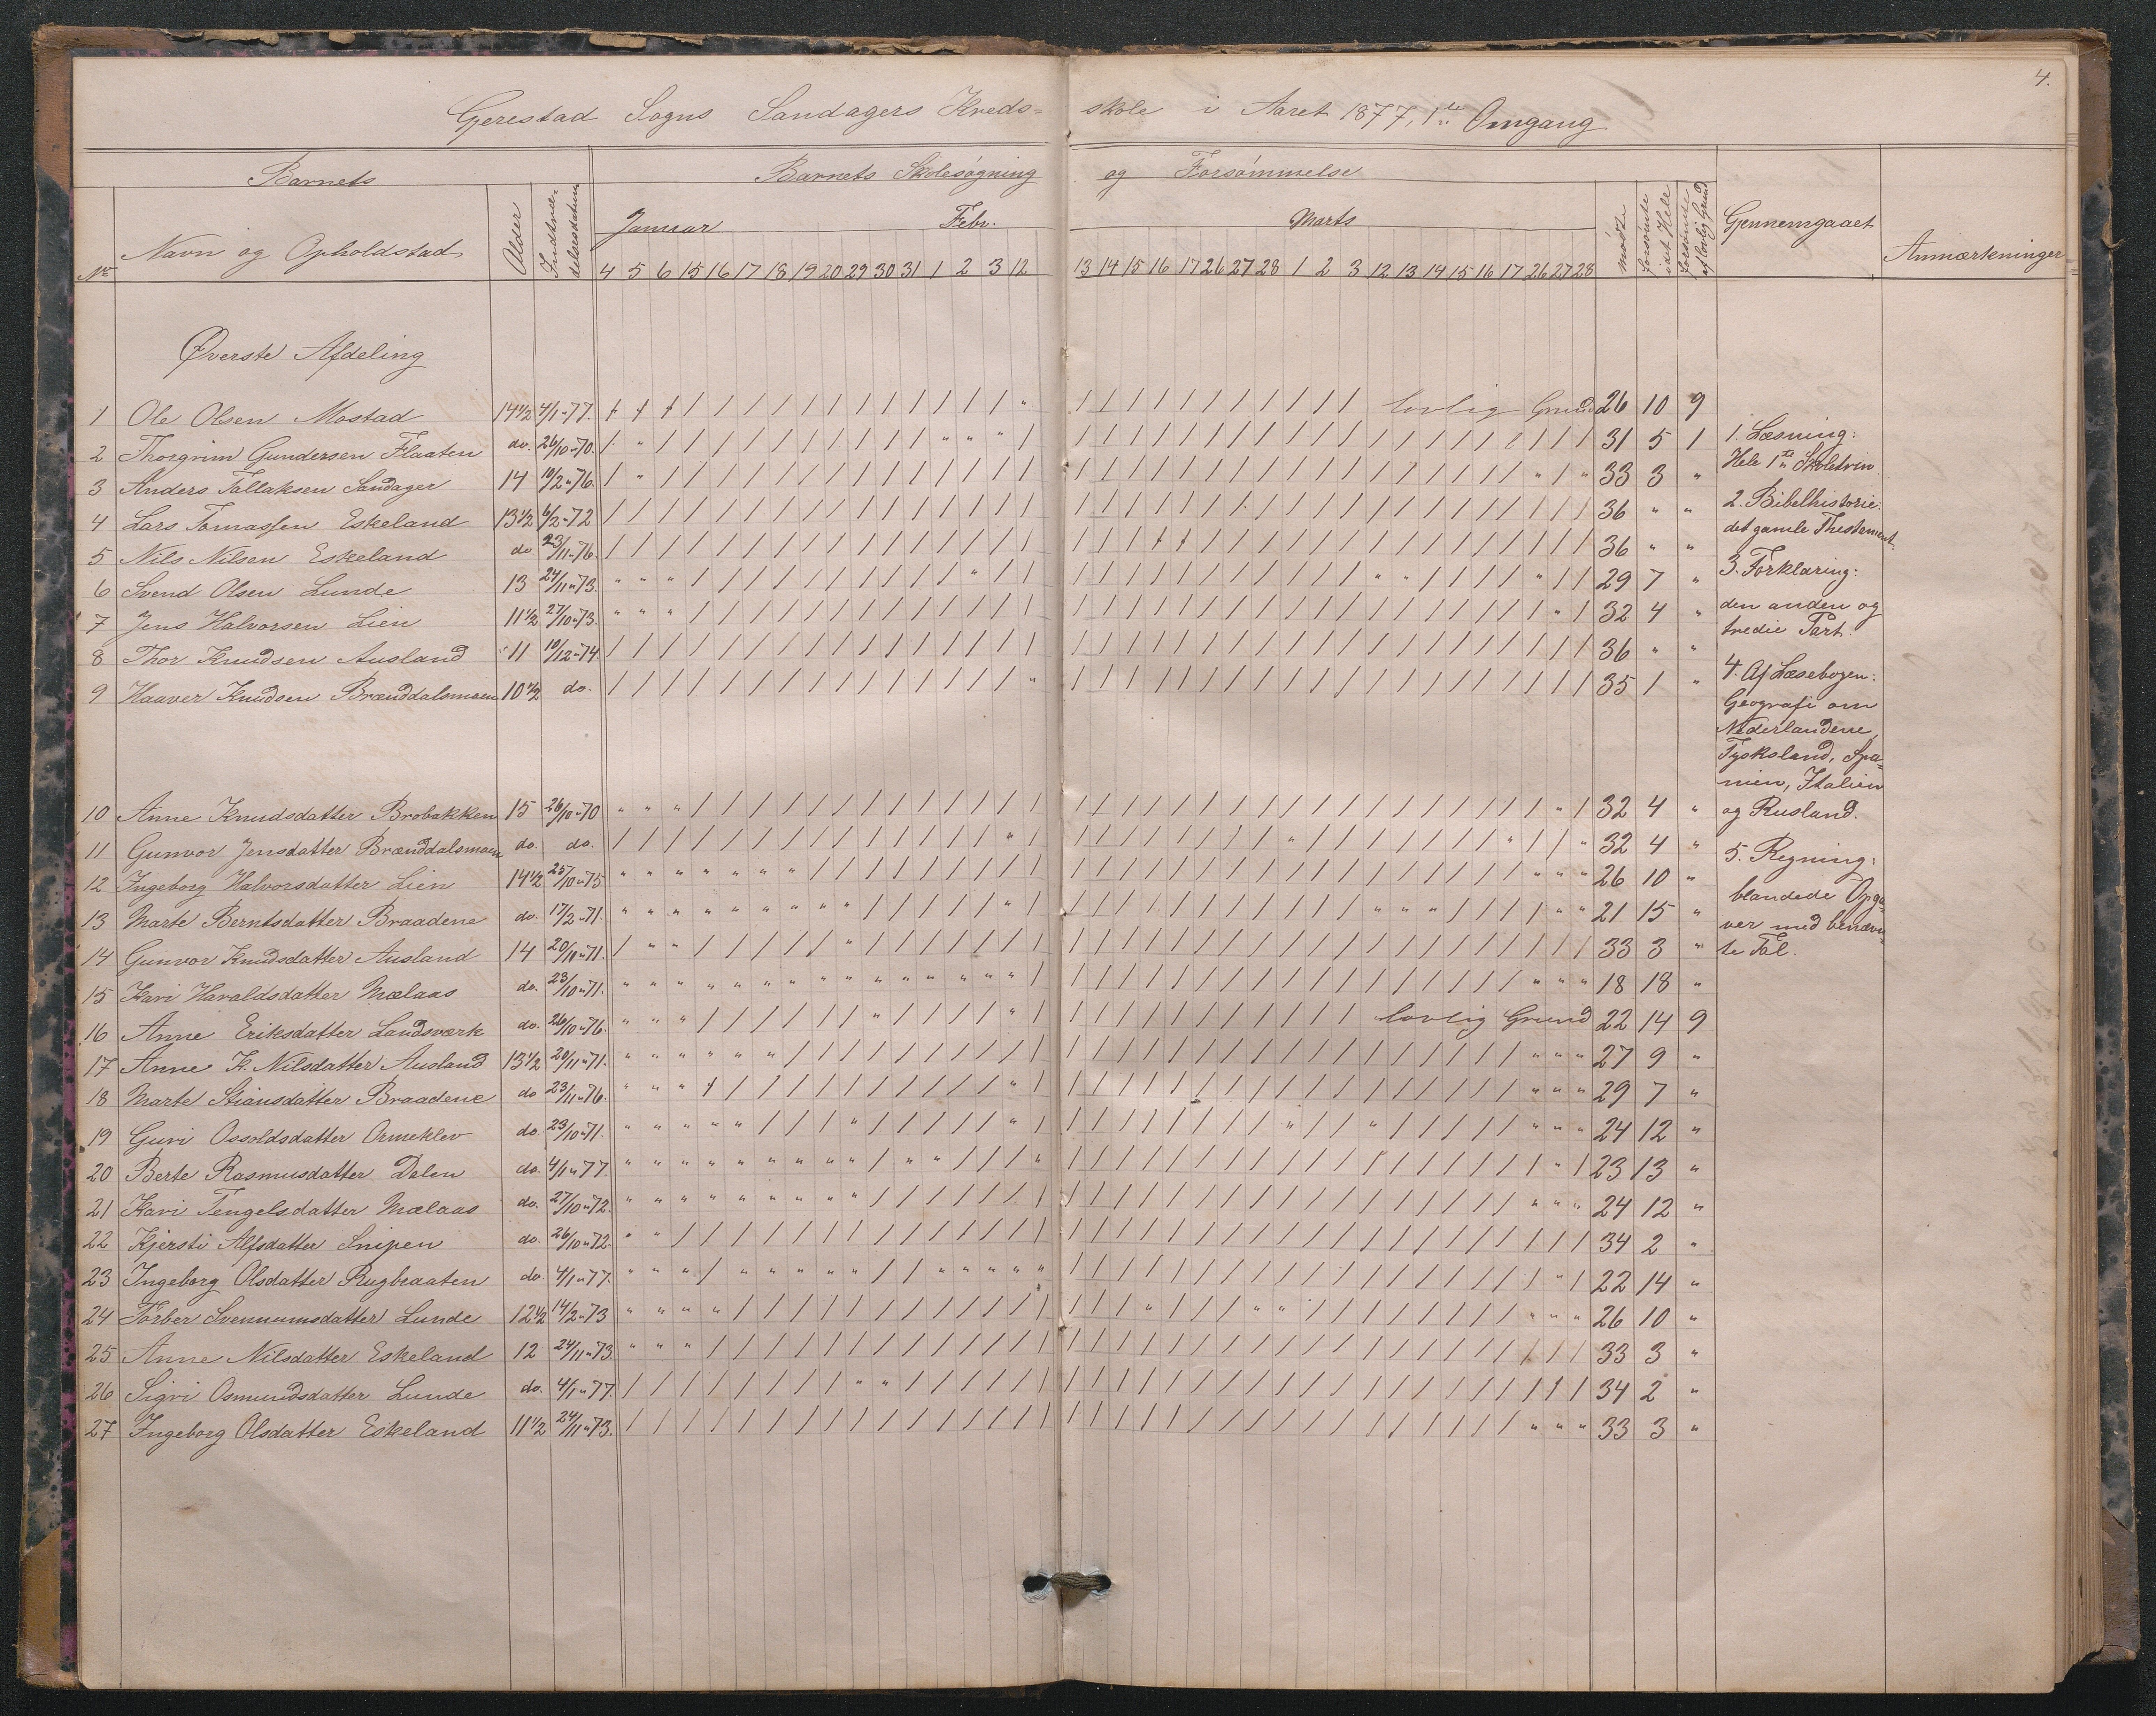 4.
Gjerestad Sogns Sandagers Kreds= skole i Aaret 1877, 1ste Omgang
Barnets Barnets Skolesøgning og Forsømmelse
No Navn og Opholdstad Alder Indtræ-delsesdatum Januar Febr. Marts mødt forsømte idet Hele forsømte af lovlig Grund Gjennemgaaet Anmærkninger
4 5 6 15 16 17 18 19 20 29 30 31 1 2 3 12 13 14 15 16 17 26 27 28 1 2 3 12 13 14 15 16 17 26 27 28
Øverste Afdeling
1 Ole Olsen Mostad 14 1/2 4/1-77. lovlig Grund 26 10 9
2 Thorgrim Gundersen Flaaten do. 26/10-70. 31 5 1
3 Anders Tallaksen Sandager 14 10/2-76. 33 3 "
4 Lars Tomassen Eskeland 13 1/2 6/2-72 36 " "
5 Nils Nilsen Eskeland do 23/11-76. 36 " "
6 Svend Olsen Lunde 13 24/11-73. 29 7 "
7 Jens Halvorsen Lien 11 1/2 27/10-73. 32 4 "
8 Thor Knudsen Ausland 11 10/12-74 36 " "
9 Haaver Knudsen Brænddalsmoen 10 1/2 do. 35 1 "
10 Anne Knudsdatter Brobakken 15 26/10-70 32 4 "
11 Gunvor Jensdatter Brænddalsmoen do. do. 32 4 "
12 Ingeborg Halvorsdatter Lien 14 1/2 25/10-75 26 10 "
13 Marte Berntsdatter Braadene do. 17/2-71. 21 15 "
14 Gunvor Knudsdatter Ausland 14 20/11-71. 33 3 "
15 Kari Haraldsdatter Mælaas do. 23/10-71. 18 18 "
16 Anne Eriksdatter Landsværk do. 26/10-76. lovlig Grund 22 14 9
17 Anne K. Nilsdatter Ausland 13 1/2 20/11-71. 27 9 "
18 Marte Stiansdatter Braadene do 23/11-76. 29 7 "
19 Guri Ossoldsdatter Ormeklev do 23/10-71. 24 12 "
20 Berte Rasmusdatter Dalen do. 4/1-77. 23 13 "
21 Kari Tengelsdatter Mælaas do. 27/10-72. 24 12 "
22 Kjersti Alfsdatter Snipen do. 26/10-72. 34 2 "
23 Ingeborg Olsdatter Rugbraaten do. 4/1-77. 22 14 "
24 Torber Svenumsdatter Lunde 12 1/2 14/2-73 26 10 "
25 Anne Nilsdatter Eskeland 12 24/11-73. 33 3 "
26 Sigri Osmundsdatter Lunde do. 4/1-77. 34 2 "
27 Ingeborg Olsdatter Eskeland 11 1/2 24/11-73. 33 3 "
1. Læsning:
Hele 1ste Skoletrin
2. Bibelhistorie:
det gamle Thestement
3. Forklaring:
den anden og
tredie Part.
4. Af Læsebogen:
Geografi om
Nederlandene,
Tyskland, Spa=
nien, Italien
og Rusland.
5. Regning:
blandede Opga-
ver med benævn-
te Tal.